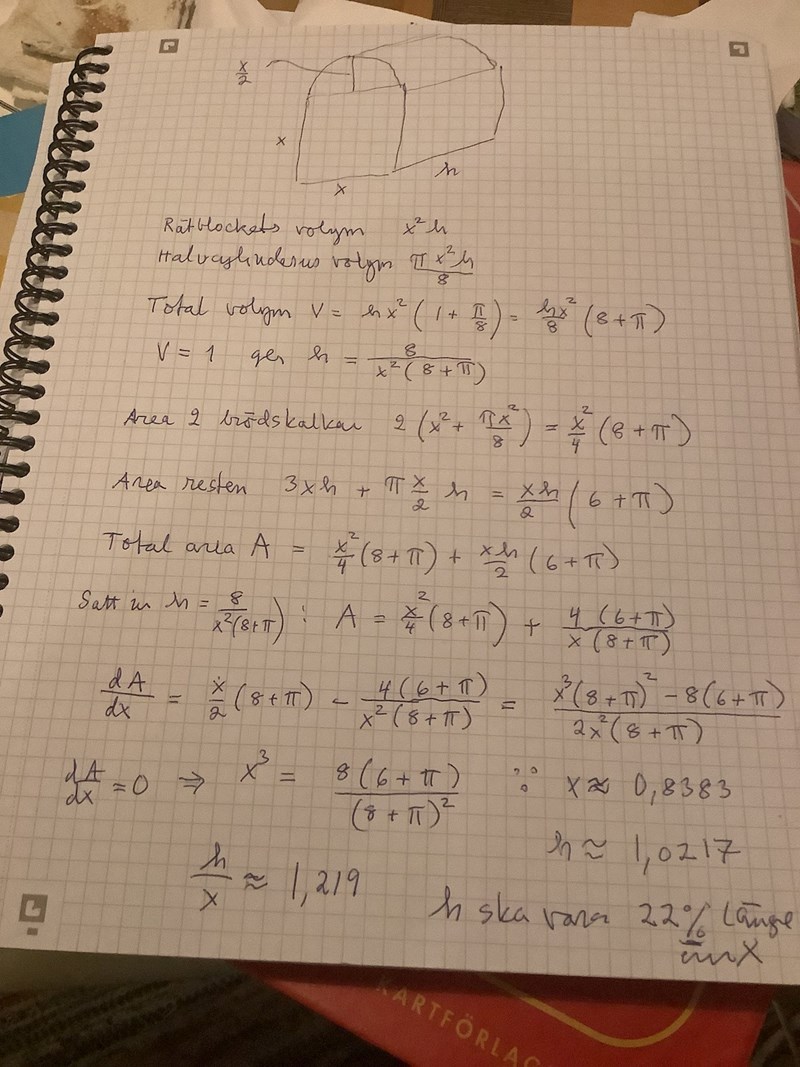 x/2
x
x
h
Rätblockets volym x²h
Halvcylinderns volym πx²h/8
Total volym V = hx²(1 + π/8) = hx²/8 (8 + π)
V = 1 ger h = 8/(x²(8 + π))
Area 2 brödskalkar 2(x² + πx²/8) = x²/4 (8 + π)
Area resten 3xh + π x/2 h = xh/2 (6 + π)
Total area A = x²/4 (8 + π) + xh/2 (6 + π)
Satt in h = 8/(x²(8+π)) : A = x²/4 (8 + π) + 4(6+π)/(x(8+π))
dA/dx = x/2 (8 + π) − 4(6 + π)/(x²(8 + π)) = (x³(8 + π)² − 8(6 + π))/(2x²(8 + π))
dA/dx = 0 ⇒ x³ = 8(6 + π)/(8 + π)² ∵ x ≈ 0,8383
h ≈ 1,0217
h/x ≈ 1,219
h ska vara 22% längre
än x
KARTFÖRLAG